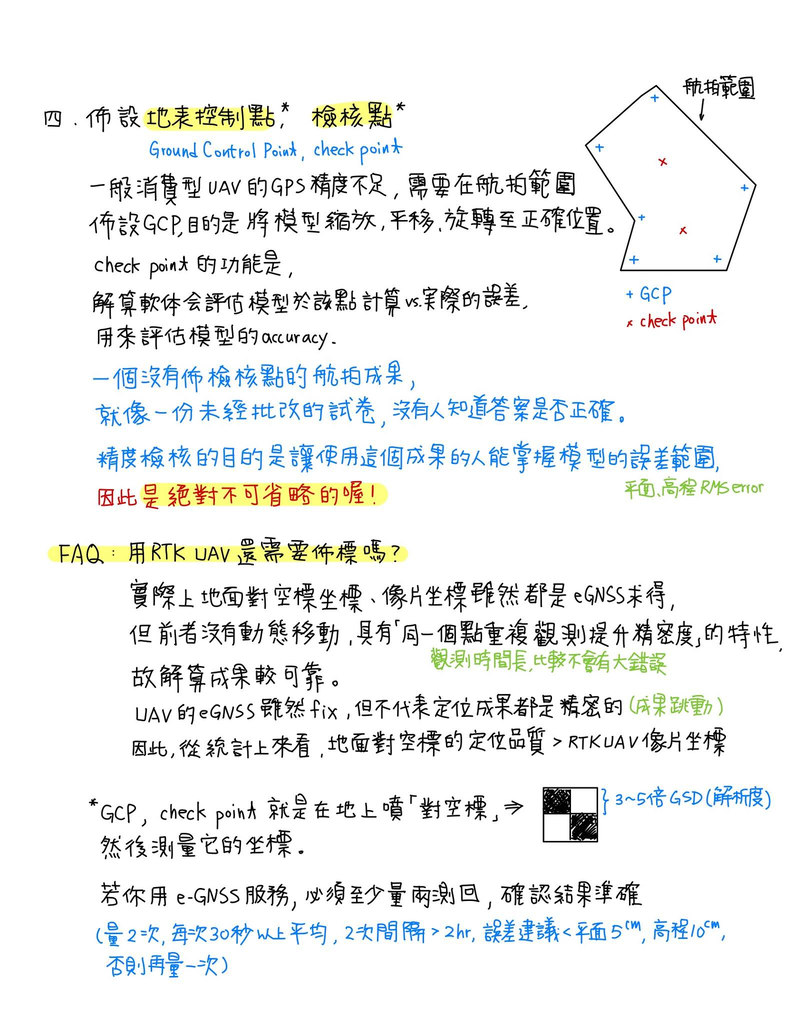 航拍範圍
四．佈設地表控制點*， 檢核點*
Ground Control Point, check point
一般消費型UAV的GPS精度不足，需要在航拍範圍
佈設GCP，目的是將模型縮放，平移、旋轉至正確位置。
check point 的功能是，
解算軟体会評估模型於該點計算vs.實際的誤差，
用來評估模型的accuracy.
+ GCP
× check point
一個沒有佈檢核點的航拍成果，
就像一份未經批改的試卷，沒有人知道答案是否正確。
精度檢核的目的是讓使用這個成果的人能掌握模型的誤差範圍，
平面、高程RMS error
因此是絕對不可省略的喔！
FAQ：用RTK UAV還需要佈標嗎？
實際上地面對空標坐標、像片坐標雖然都是eGNSS求得，
但前者沒有動態移動，具有「同一個點重複觀測提升精密度」的特性，
觀測時間長，比較不會有大錯誤
故解算成果較可靠。
UAV的eGNSS雖然fix，但不代表定位成果都是精密的（成果跳動）
因此，從統計上來看，地面對空標的定位品質 > RTKUAV像片坐標
*GCP, check point 就是在地上噴「對空標」⇒
} 3~5倍GSD(解析度)
然後測量它的坐標。
若你用e-GNSS服務，必須至少量兩測回，確認結果準確
（量2次，每次30秒以上平均，2次間隔>2hr，誤差建議<平面5cm，高程10cm，
否則再量一次）